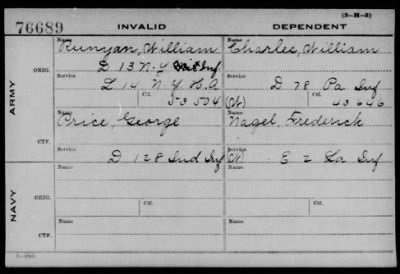 (3-M-3)
76689 INVALID DEPENDENT
Name Name
Runyan, William Charles, William
ARMY
ORIG.
D 13 N-Y Inf
Service Service
L 14 N.Y. H.A D 78 Pa Inf
Ctf. Ctf.
53504 (W) 43646
Name Name
Price, George Nagel, Frederick
CTF.
Service Service
D 128 Ind Inf (W) E 2 La Inf
NAVY
Name Name
ORIG.
Ctf. Ctf.
Name Name
CTF.